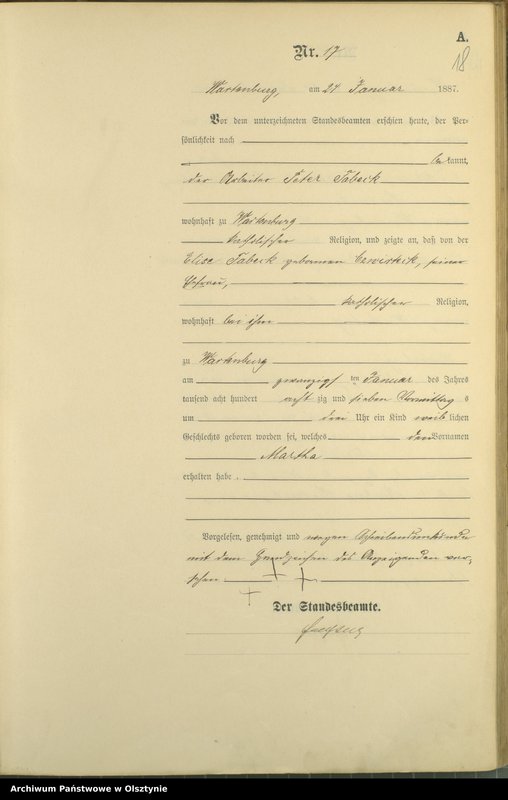 A.
18
Nr. 17
Wartenburg, am 24 Januar 1887.
Vor dem unterzeichneten Standesbeamten erschien heute, der Per-
sönlichkeit nach
bekannt,
der Arbeiter Peter Tabeck
wohnhaft zu Wartenburg
katholischer Religion, und zeigte an, daß von der
Elise Tabeck geborenen seiner
Ehefrau,
katholischer Religion,
wohnhaft bei ihm
zu Wartenburg
am zwanzigsten Januar des Jahres
tausend acht hundert achtzig und sieben Vormittags
um drei Uhr ein Kind weiblichen
Geschlechts geboren worden sei, welches den Vornamen
Martha
erhalten habe.
Vorgelesen, genehmigt und wegen Schreibensunkunde
mit dem Handzeichen des Anzeigenden ver-
sehen
+ + +
Der Standesbeamte.
Archiwum Państwowe w Olsztynie